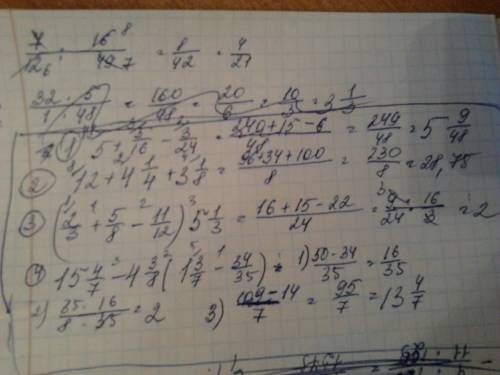 7/12 6 · 16 8/49 7 = 8/42 = 4/21
32 · 5/1 · 48 = 160/48 = 20/6 = 10/3 = 3 1/3
① 5 5/16 - 3/24 = 240+15-6/48 = 249/48 = 5 9/48
② 12 + 4 1/4 + 3 1/8 = 96+34+100/8 = 230/8 = 28,75
③ (2/3 + 5/8 - 11/12) 5 1/3 = 16+15-22/24 = 9/24 · 16/3 = 2
④ 15 4/7 - 4 3/8 (1 3/7 - 34/35) = 1) 50-34/35 = 16/35
2) 35 · 16/8 · 35 = 2 3) 109-14/7 = 95/7 = 13 4/7